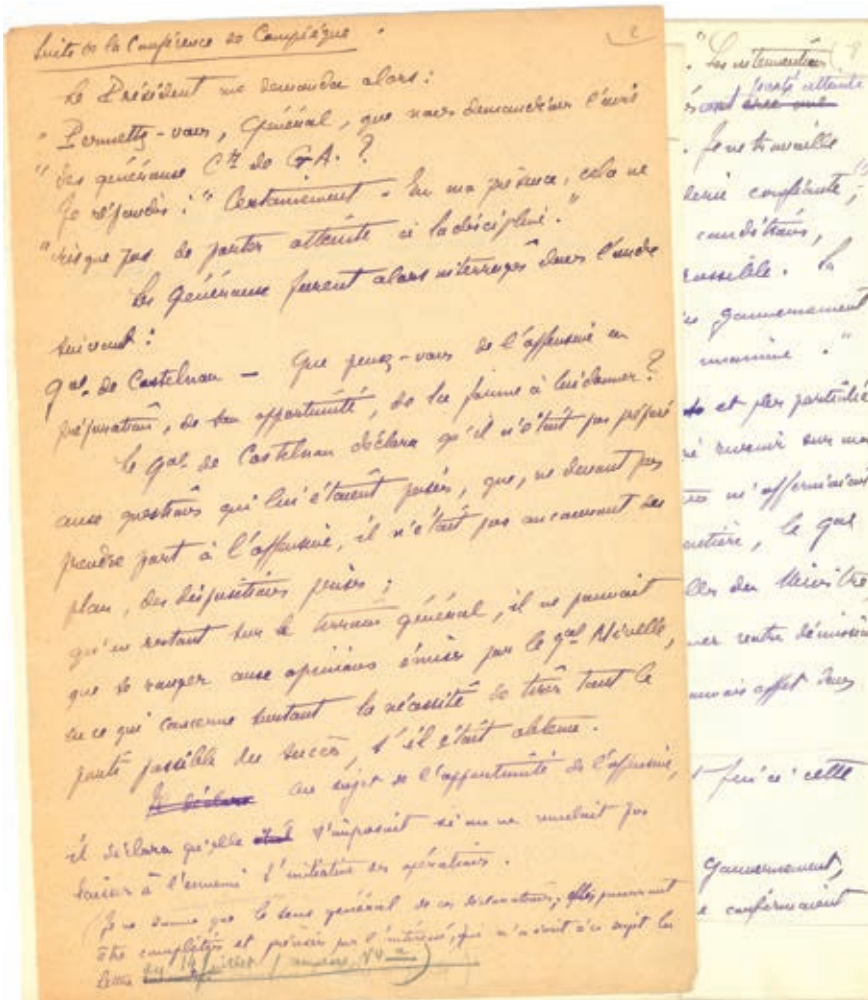 Suite de la Conférence de Compiègne.
2
Le Président me demanda alors :
" Permettez-vous, Général, que nous demandions l'avis
" des généraux Cts de G.A. ?
Je répondis : " Certainement - En ma présence, cela ne
" risque pas de porter atteinte à la discipline. "
Les Généraux furent alors interrogés dans l'ordre
suivant :
Gal. de Castelnau — Que pensez-vous de l'offensive en
préparation, de son opportunité, de la forme à lui donner ?
Le Gal. de Castelnau déclara qu'il n'était pas préparé
aux questions qui lui étaient posées, que, ne devant pas
prendre part à l'offensive, il n'était pas au courant du
plan, des dispositions prises ;
qu'en restant sur le terrain général, il ne pouvait
que se ranger aux opinions émises par le gal Nivelle,
en ce qui concerne surtout la nécessité de tirer tout le
parti possible du succès, s'il était obtenu.
Il déclara au sujet de l'opportunité de l'offensive,
il déclara qu'elle s'imposait si on ne voulait pas
laisser à l'ennemi l'initiative des opérations.
(Je ne donne que le sens général de ces déclarations ; elles pourront
être complétées et précisées par l'intéressé, qui m'a écrit à ce sujet la
lettre 14 juillet annexe, No
" Les
porté atteinte
sont
. Je ne travaille
confiante,
conditions,
possible.
gouvernement
unanime . "
et plus particulière
revenir sur ma
le gal
du Ministre
votre démission
mauvais effet dans
cette
gouvernement,
confirmaient